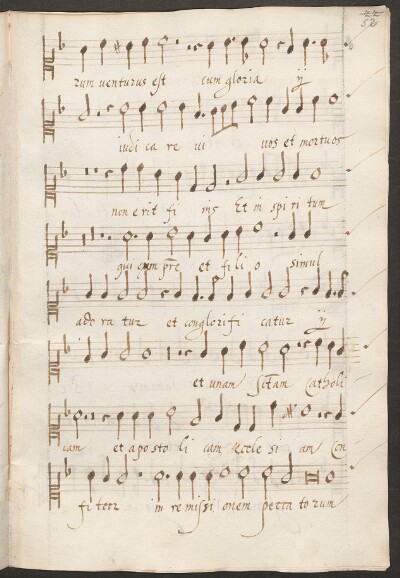 52
rum venturus est cum gloria ij
iudi ca re vi vos et mortuos
non erit fi nis Et in spi ri tum
qui cum pre et fi li o simul
ado ra tur et conglorifi catur ij
et unam sctam Catholi
cam et aposto li cam eccle si am Con
fiteor in remissi onem pecca to rum